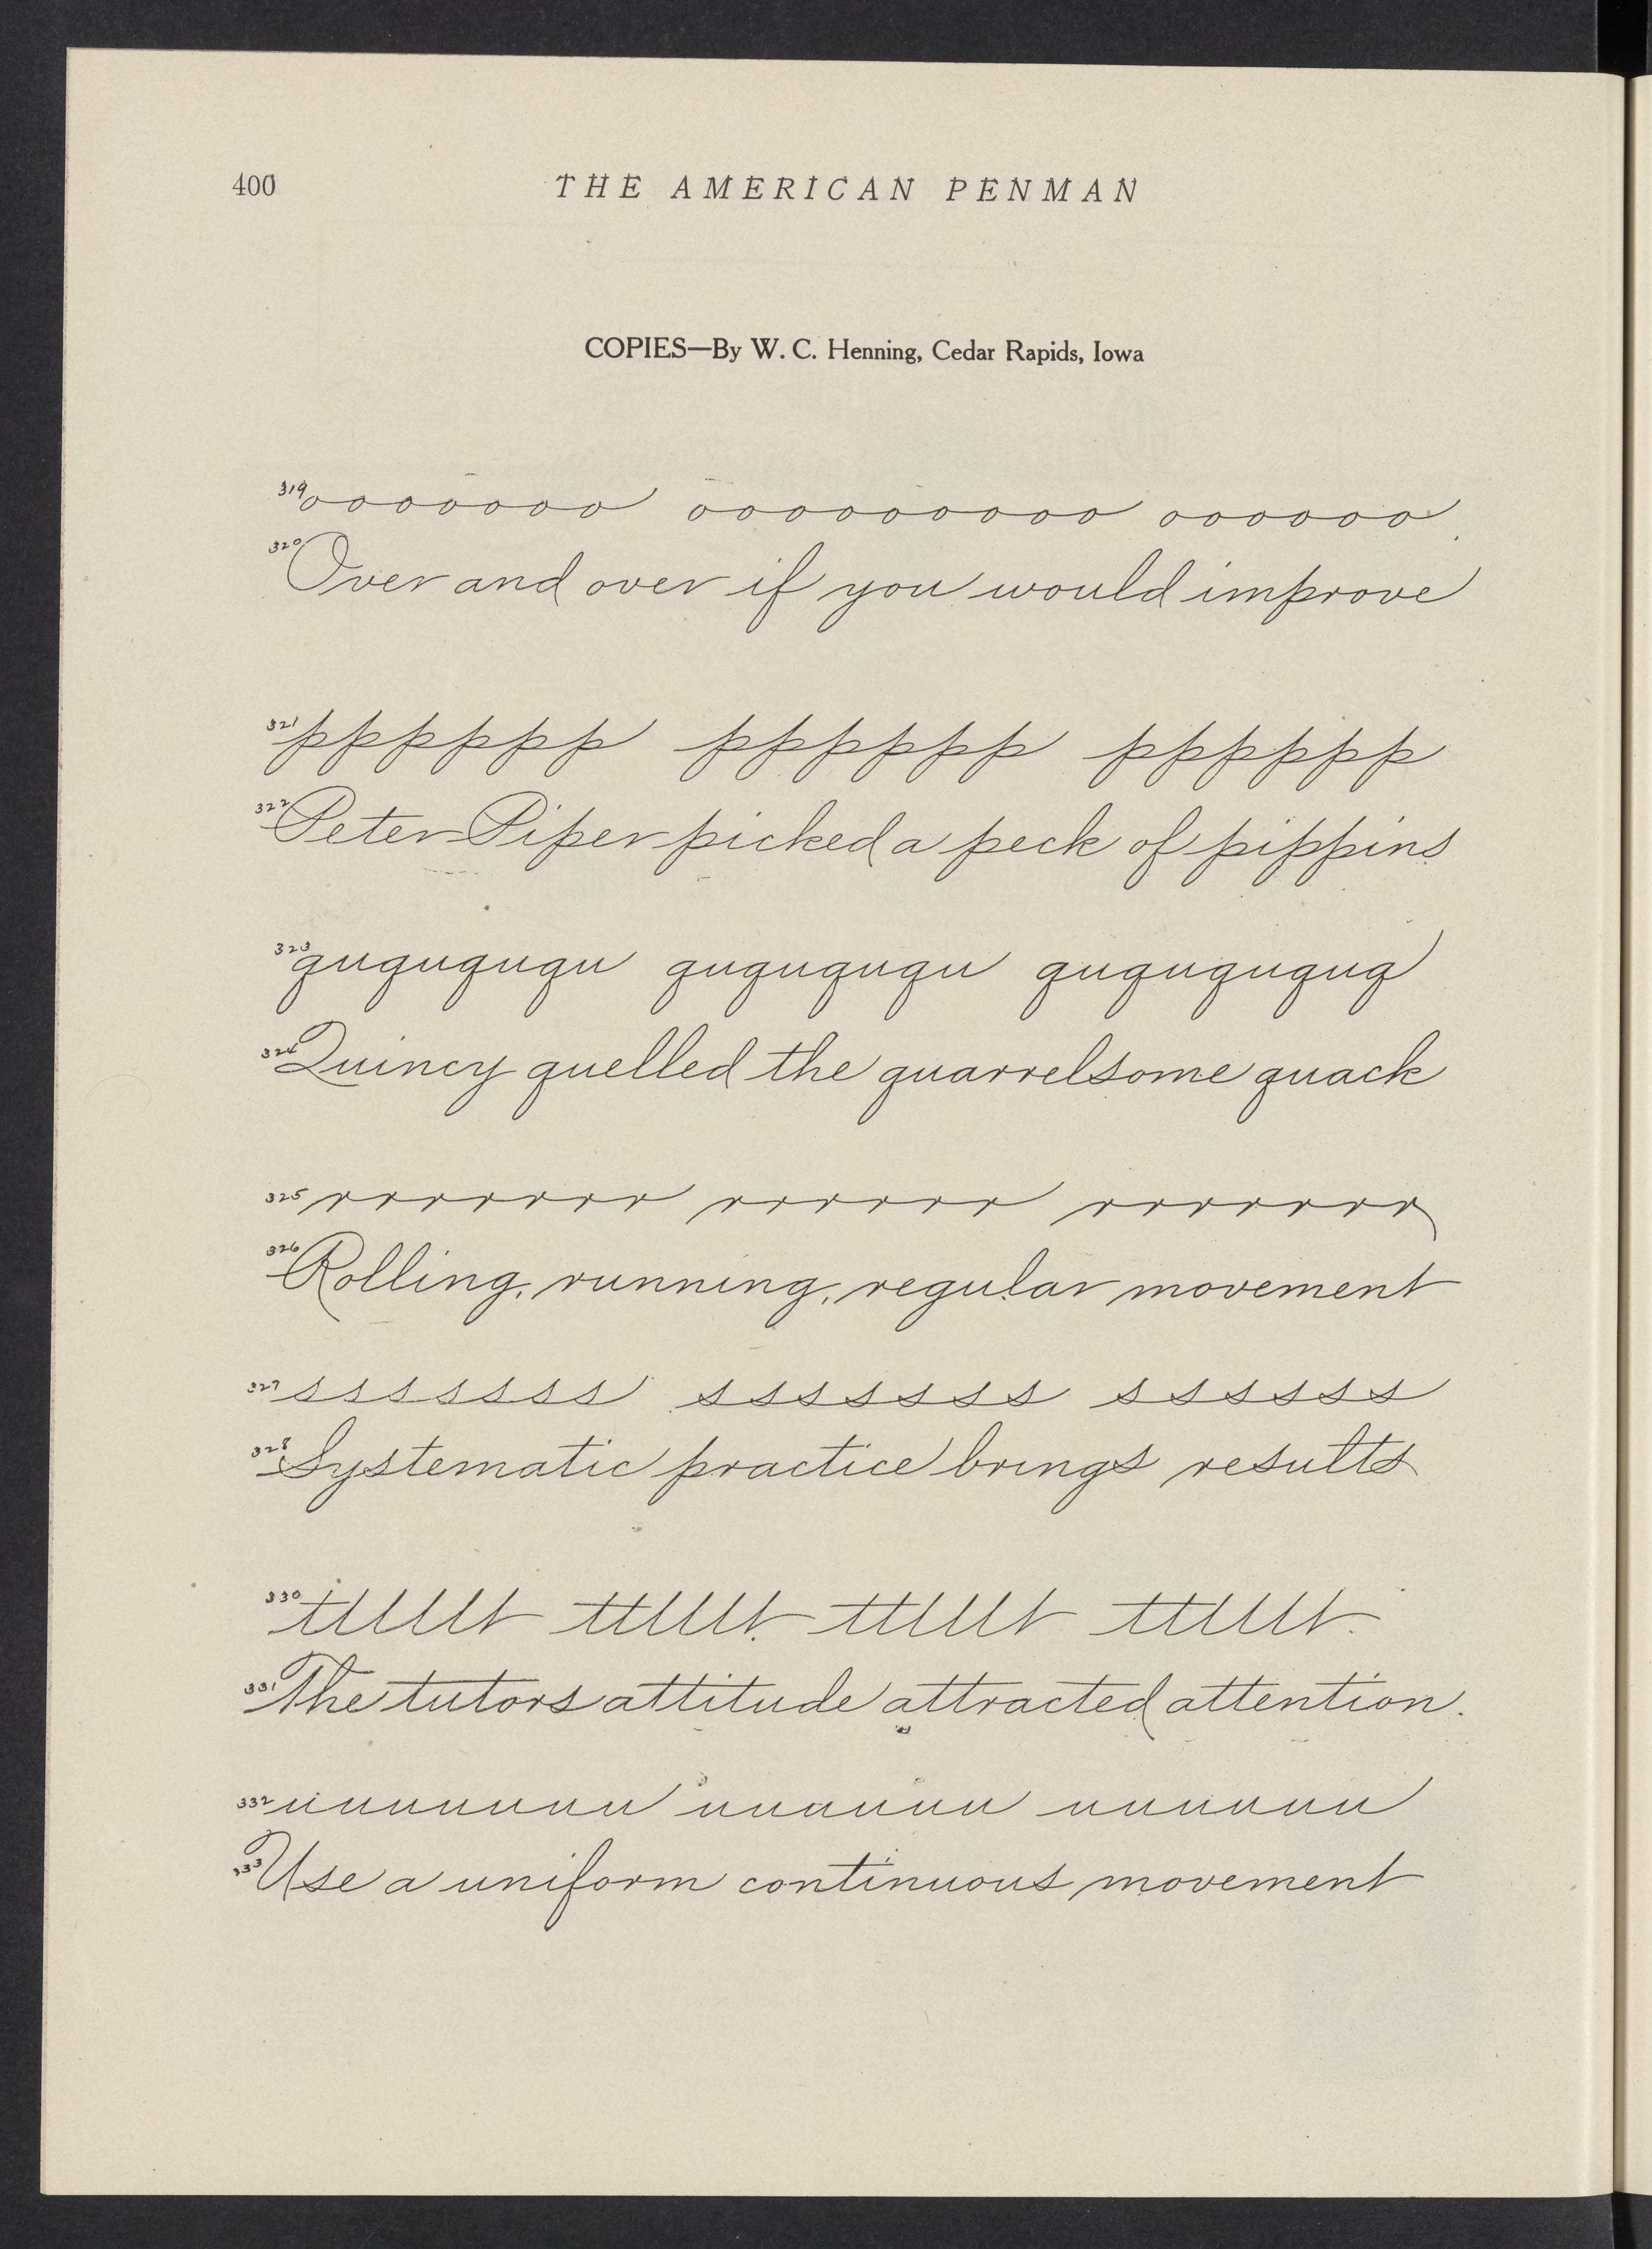 400 THE AMERICAN PENMAN
COPIES—By W. C. Henning, Cedar Rapids, Iowa
319 ooooooo oooooooooo oooooo
320 Over and over if you would improve
321 pppppp pppppp pppppp
322 Peter Piper picked a peck of pippins
323 ququququ ququququ ququququq
324 Quincy quelled the quarrelsome quack
325 rrrrrrr rrrrrr rrrrrrr
326 Rolling, running, regular movement
327 sssssss sssssss ssssss
328 Systematic practice brings results
330 tttttt tttttt tttttt tttttt
331 The tutors attitude attracted attention.
332 uuuuuuu uuuuuu uuuuuu
333 Use a uniform continuous movement